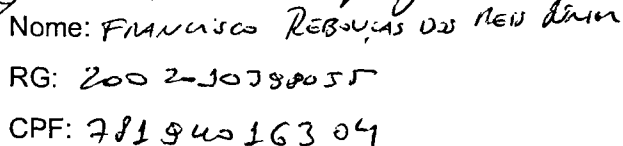 Nome: FRANCISCO REBOUÇAS DOS REIS JÚNIOR
RG: 2002010398055
CPF: 781 940 163 04